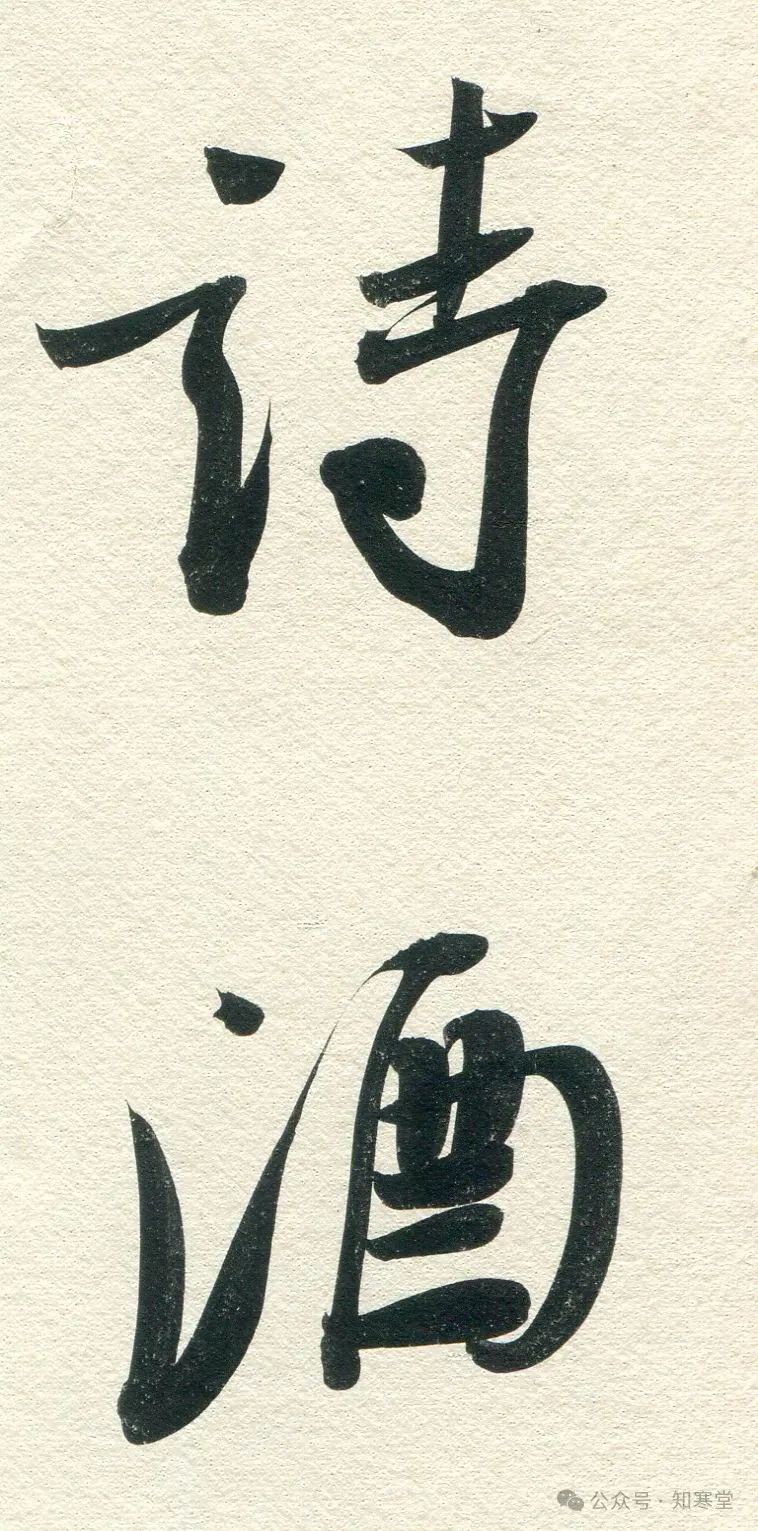 诗
酒
公众号·知寒堂